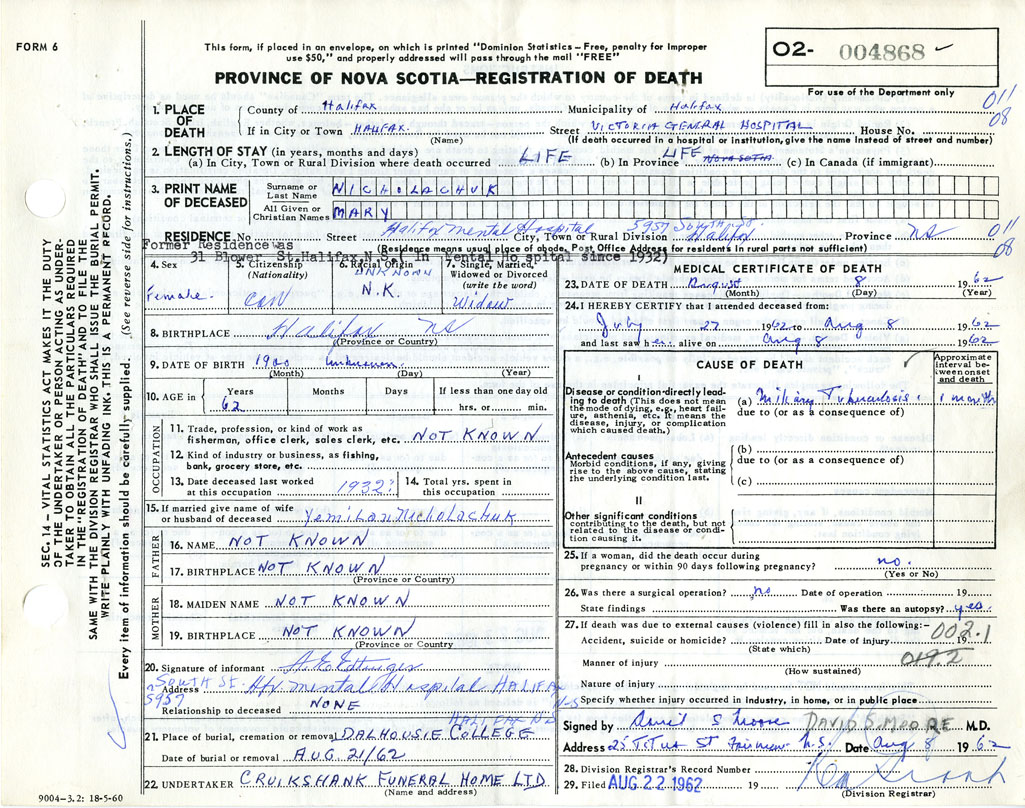 FORM 6
This form, if placed in an envelope, on which is printed "Dominion Statistics – Free, penalty for improper
use $50," and properly addressed will pass through the mail "FREE"
O2- 004868 ✓
For use of the Department only
PROVINCE OF NOVA SCOTIA—REGISTRATION OF DEATH
011
08
1. PLACE OF DEATH
County of Halifax Municipality of Halifax
If in City or Town HALIFAX Street VICTORIA GENERAL HOSPITAL House No.
(Name) (If death occurred in a hospital or institution, give the name instead of street and number)
2. LENGTH OF STAY (in years, months and days)
(a) In City, Town or Rural Division where death occurred LIFE (b) In Province LIFE (c) In Canada (if immigrant)
3. PRINT NAME OF DECEASED
Surname or Last Name NICHOLACHUK
All Given or Christian Names MARY
RESIDENCE No. Street Halifax Mental Hospital 5957 South St City, Town or Rural Division Halifax Province NS
011
08
Former Residence was (Residence means usual place of abode. Post Office Address for residents in rural parts not sufficient)
31 Blower St. Halifax, N.S. (in Mental Hospital since 1932)
4. Sex
Female
5. Citizenship
(Nationality)
CAN
6. Racial Origin
UNKNOWN
N.K.
7. Single, Married,
Widowed or Divorced
(write the word)
Widow
8. BIRTHPLACE Halifax NS
(Province or Country)
9. DATE OF BIRTH 1900 unknown
(Month) (Day) (Year)
10. AGE in Years 62 Months Days If less than one day old
hrs. or min.
OCCUPATION
11. Trade, profession, or kind of work as
fisherman, office clerk, sales clerk, etc. NOT KNOWN
12. Kind of industry or business, as fishing,
bank, grocery store, etc.
13. Date deceased last worked
at this occupation 1932?
14. Total yrs. spent in
this occupation
15. If married give name of wife
or husband of deceased Yemilan Nicholachuk
FATHER
16. NAME NOT KNOWN
17. BIRTHPLACE NOT KNOWN
(Province or Country)
MOTHER
18. MAIDEN NAME NOT KNOWN
19. BIRTHPLACE NOT KNOWN
(Province or Country
20. Signature of informant
5957 SOUTH ST.
Address Hfx. Mental Hospital HALIFAX N-S
Relationship to deceased NONE
HALIFAX NS
21. Place of burial, cremation or removal DALHOUSIE COLLEGE
Date of burial or removal AUG 21/62
22. UNDERTAKER CRUIKSHANK FUNERAL HOME LTD
(Name and address)
MEDICAL CERTIFICATE OF DEATH
23. DATE OF DEATH August 8 1962
(Month) (Day) (Year)
24. I HEREBY CERTIFY that I attended deceased from:
July 27 1962 to Aug 8 1962
and last saw her alive on Aug 8 1962
CAUSE OF DEATH ✓
Approximate
interval be-
tween onset
and death
I
Disease or condition directly lead-
ing to death (This does not mean
the mode of dying, e.g., heart fail-
ure, asthenia, etc. It means the
disease, injury, or complication
which caused death.)
(a) Miliary Tuberculosis. 1 month
due to (or as a consequence of)
Antecedent causes
Morbid conditions, if any, giving
rise to the above cause, stating
the underlying condition last.
(b)
due to (or as a consequence of)
(c)
II
Other significant conditions
contributing to the death, but not
related to the disease or condi-
tion causing it.
25. If a woman, did the death occur during
pregnancy or within 90 days following pregnancy? no.
(Yes or No)
26. Was there a surgical operation? no Date of operation 19
State findings Was there an autopsy? yes.
27. If death was due to external causes (violence) fill in also the following:-
002.1
Accident, suicide or homicide? Date of injury 19
(State which)
019.2
Manner of injury
(How sustained)
Nature of injury
Specify whether injury occurred in industry, in home, or in public place
Signed by David S Moore DAVID S. MOORE M.D.
Address 25 Titus St Fairview N.S. Date Aug 8 1962
28. Division Registrar's Record Number
29. Filed AUG 22 1962 19
(Division Registrar)
SEC. 14 – VITAL STATISTICS ACT MAKES IT THE DUTY
OF THE UNDERTAKER OR PERSON ACTING AS UNDER-
TAKER TO OBTAIN ALL THE PARTICULARS REQUIRED
IN THE "REGISTRATION OF DEATH" AND TO FILE THE
SAME WITH THE DIVISION REGISTRAR WHO SHALL ISSUE THE BURIAL PERMIT.
WRITE PLAINLY WITH UNFADING INK. THIS IS A PERMANENT RECORD.
Every item of information should be carefully supplied. (See reverse side for instructions.)
9004–3.2: 18-5-60